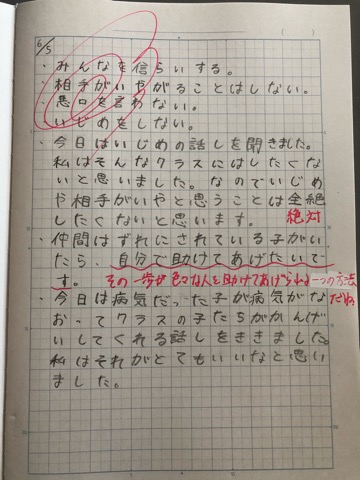 6/5
・みんなを信らいする。
相手がいやがることはしない。
悪口を言わない。
いじめをしない。
・今日はいじめの話しを聞きました。
私はそんなクラスにはしたくな
いと思いました。なのでいじめ
や相手がいやと思うことは全絶
絶対
したくないと思います。
・仲間はずれにされている子がい
たら、自分で助けてあげたいで
す。
その一歩が色々な人を助けてあげられる一つの方法
だね。
・今日は病気だった子が病気がな
おってクラスの子たちがかんげ
いしてくれる話しをききました。
私はそれがとてもいいなと思い
ました。